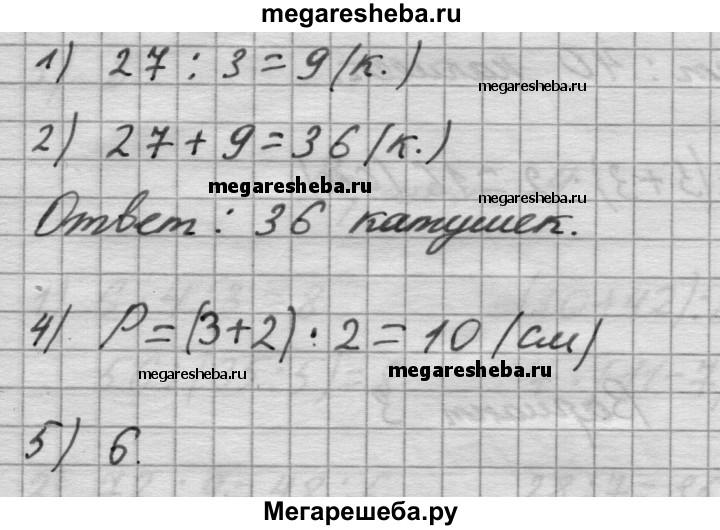 megaresheba.ru
1) 27 : 3 = 9 (к.)
megaresheba.ru
2) 27 + 9 = 36 (к.)
megaresheba.ru
megaresheba.ru
Ответ: 36 катушек.
4) P = (3+2) · 2 = 10 (см)
megaresheba.ru
megaresheba.ru
5) 6.
Мегарешеба.ру